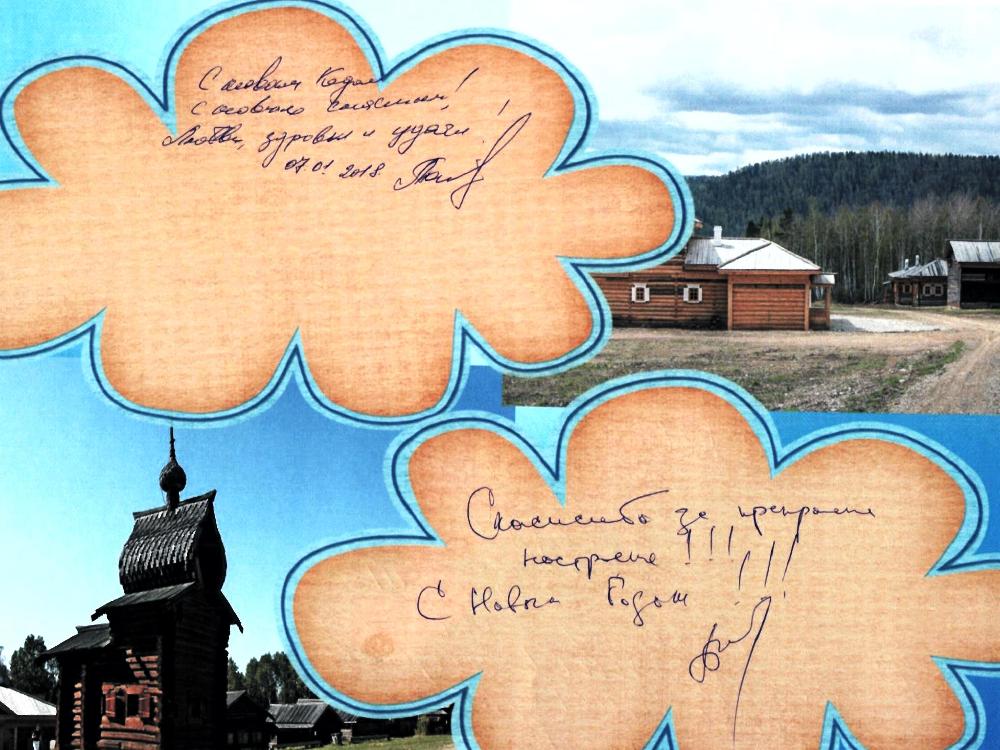 С новым Годом!
С новым счастьем!
Любви, здоровья и удачи!
07.01 2018
Спасибо за прекрасное
настроение!!!!!!
С Новым Годом!